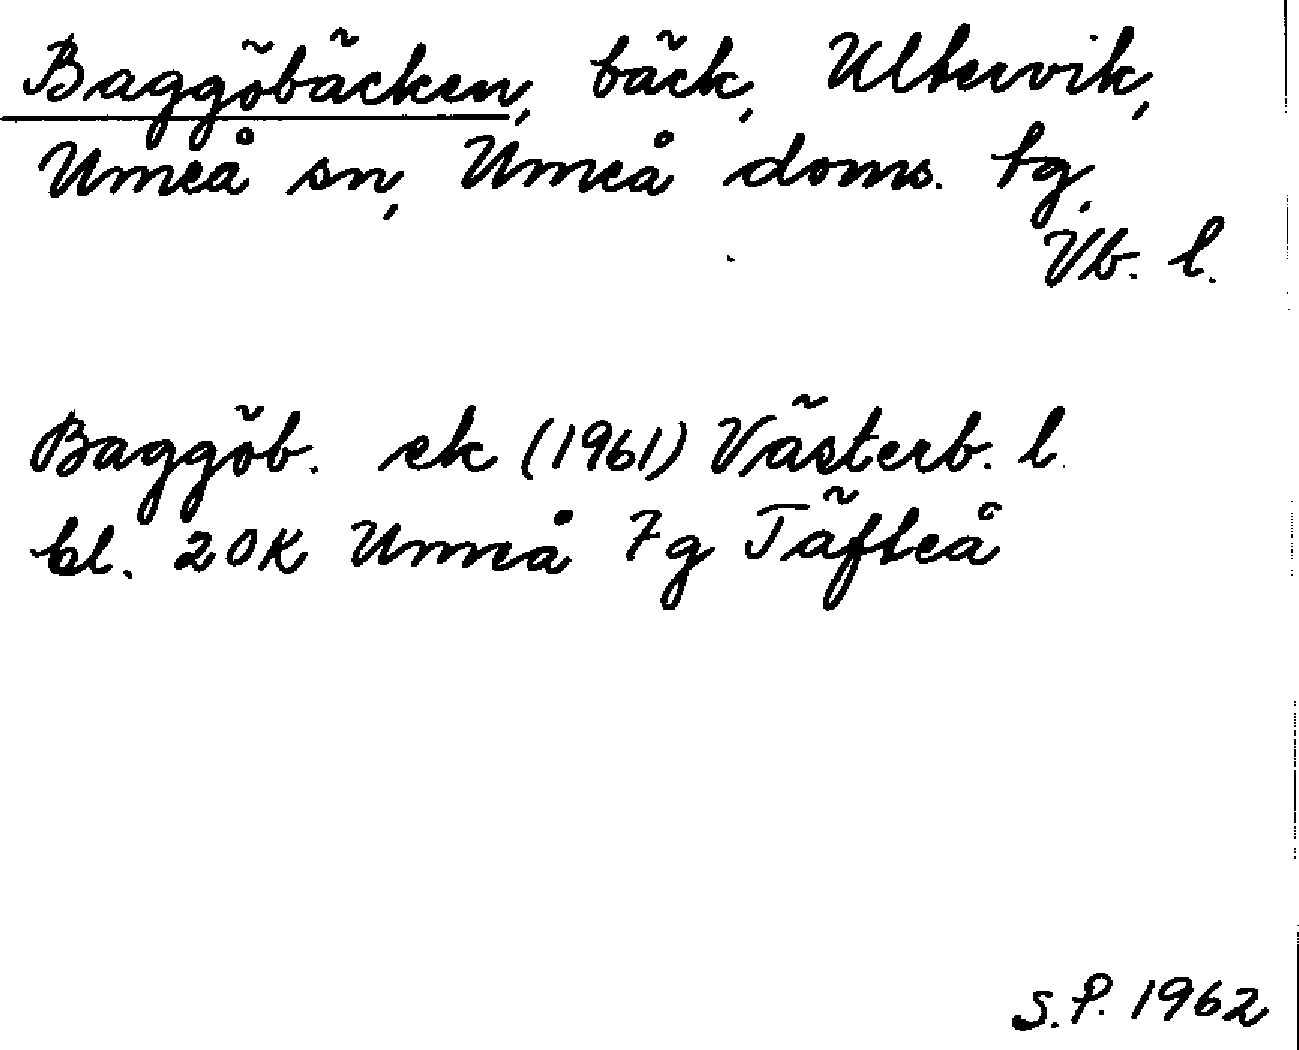 Baggöbäcken, bäck, Ultervik,
Umeå sn, Umeå doms. tg,
Vb. l.
Baggöb. ek (1961) Västerb. l.
bl. 20K Umeå 7g Täfteå
S.P. 1962